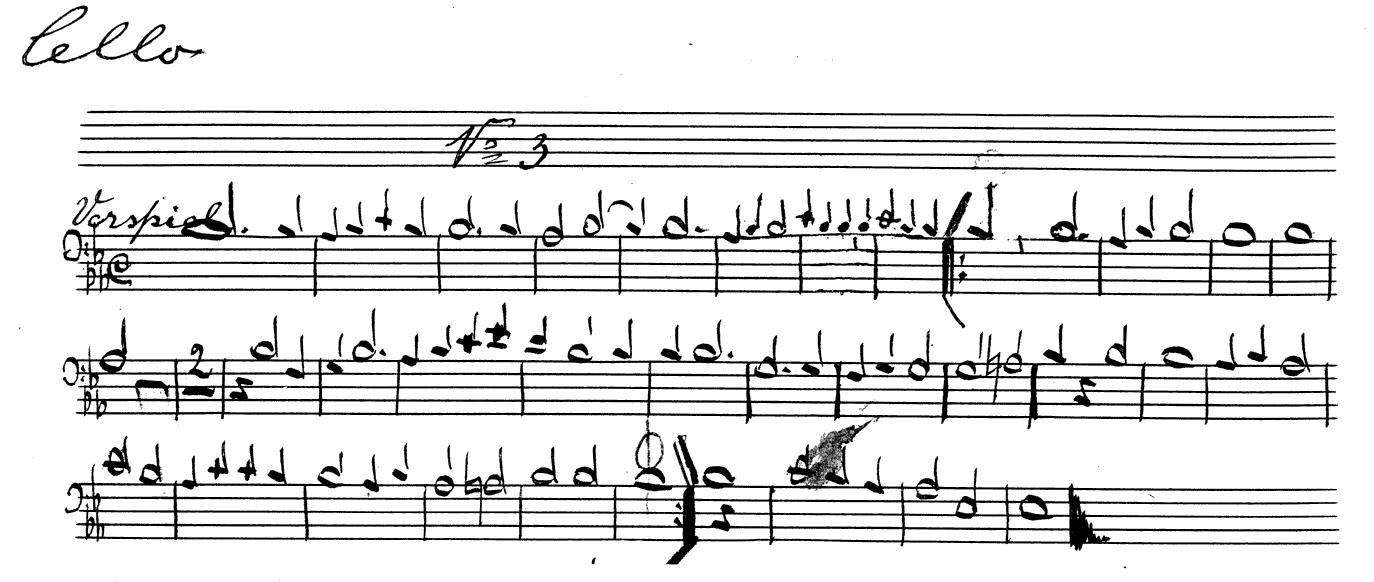 Cello
No 3
Vorspiel
2